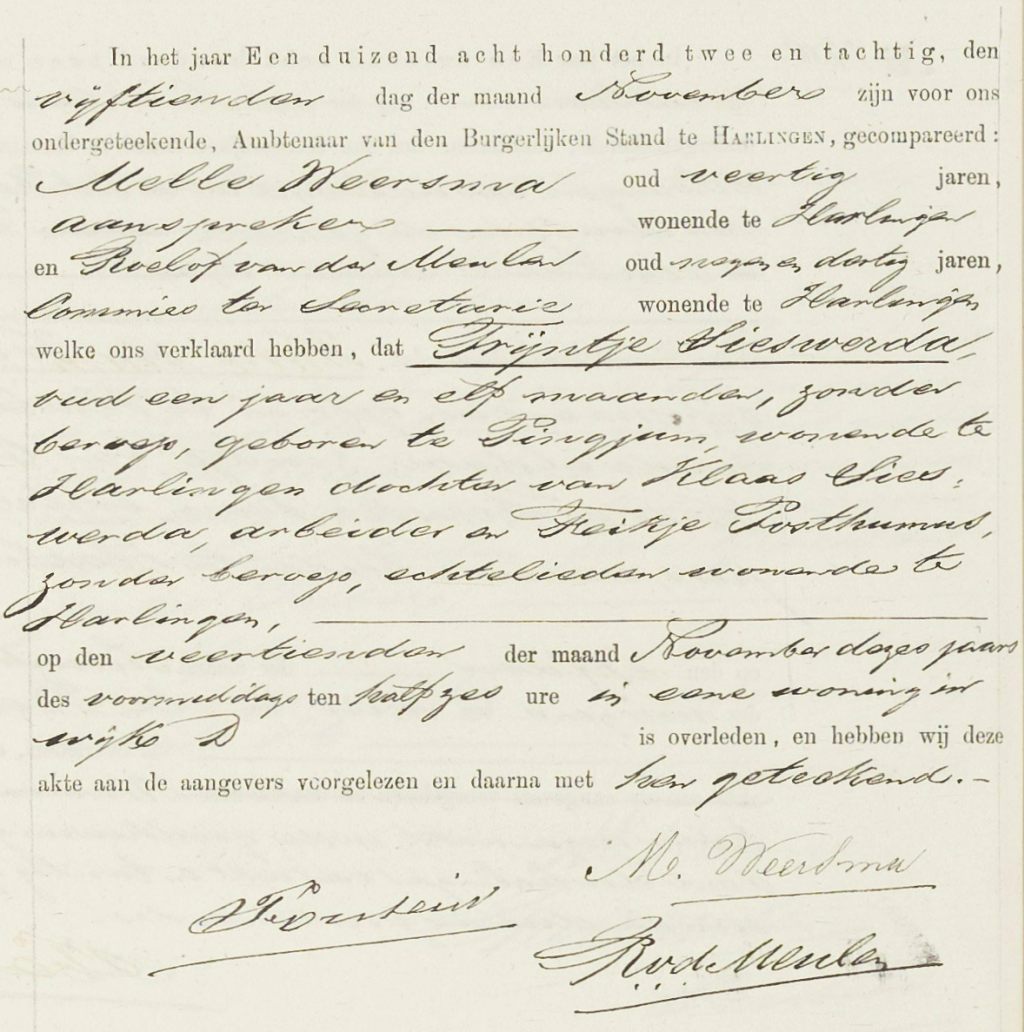 In het jaar Een duizend acht honderd twee en tachtig, den
vijftienden dag der maand November zijn voor ons
ondergeteekende, Ambtenaar van den Burgerlijken Stand te HARLINGEN, gecompareerd:
Melle Weersma oud veertig jaren,
aanspreker wonende te Harlingen
en Roelof van der Meulen oud negen en dertig jaren,
Commies ter Secretarie wonende te Harlingen
welke ons verklaard hebben, dat Trijntje Sieswerda,
oud een jaar en elf maanden, zonder
beroep, geboren te Pingjum, wonende te
Harlingen dochter van Klaas Sies:
werda, arbeider en Feikje Posthumus,
zonder beroep, echtelieden wonende te
Harlingen,
op den veertienden der maand November dezes jaars
des voormiddags ten half zes ure in eene woning in
wijk D is overleden, en hebben wij deze
akte aan de aangevers voorgelezen en daarna met hen geteekend.-
M. Weersma
Fontein
R v d Meulen